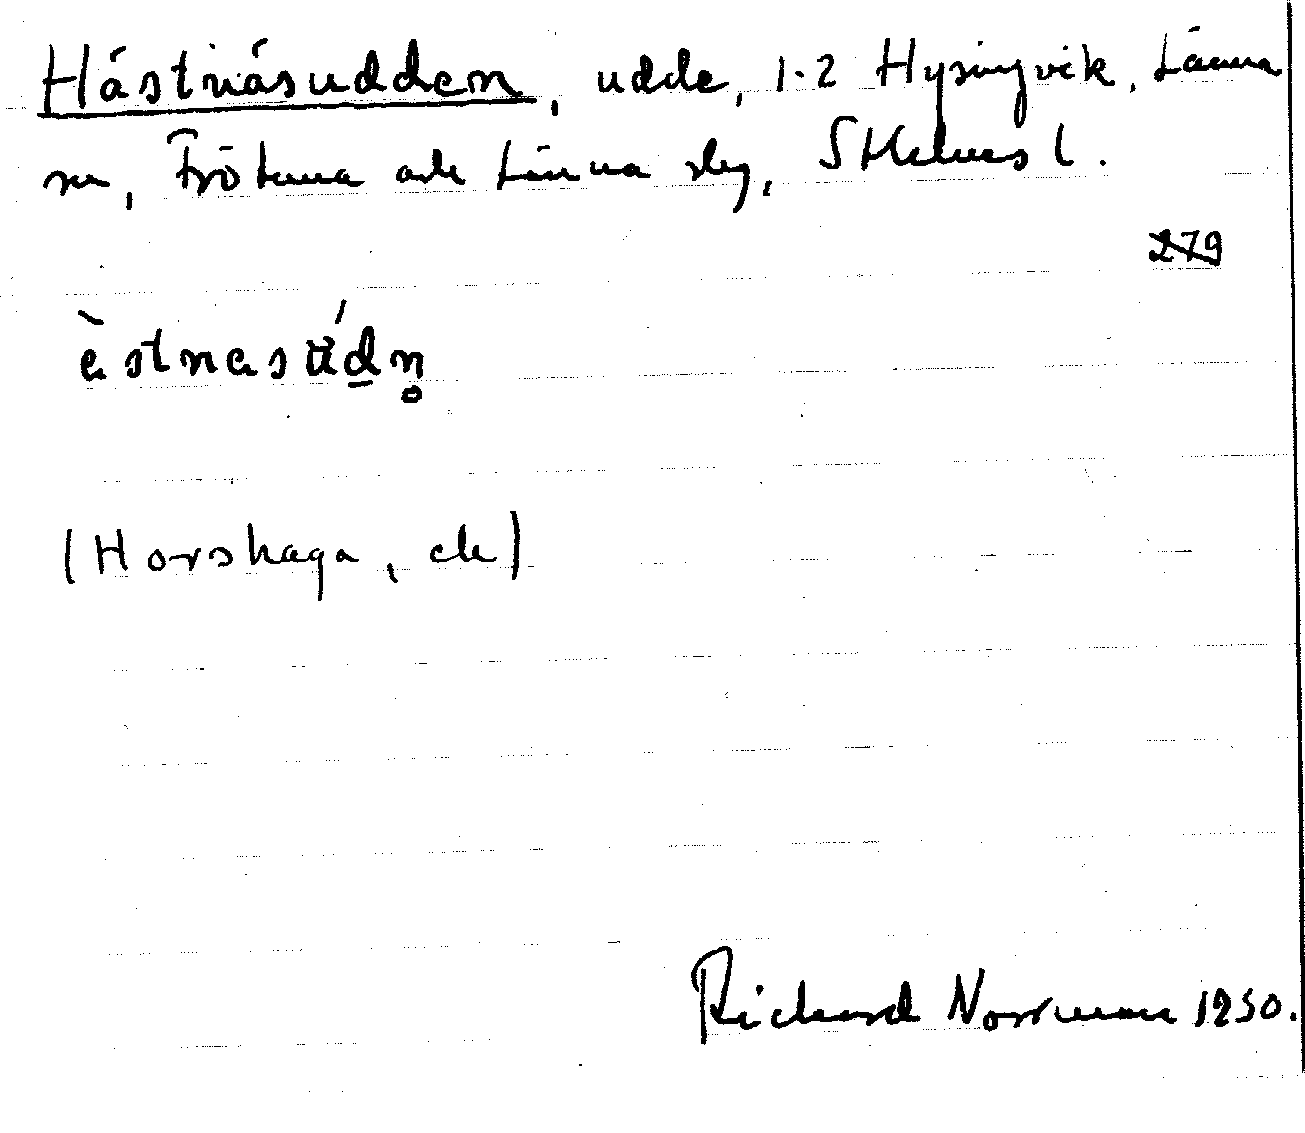 Hästnäsudden, udde, 1-2 Hysingvik, Länna
sn, Frötuna och Länna slg, Sthlms l.
279
èstnesúdn̥
(Horshaga, ek)
Richard Norrman 1950.